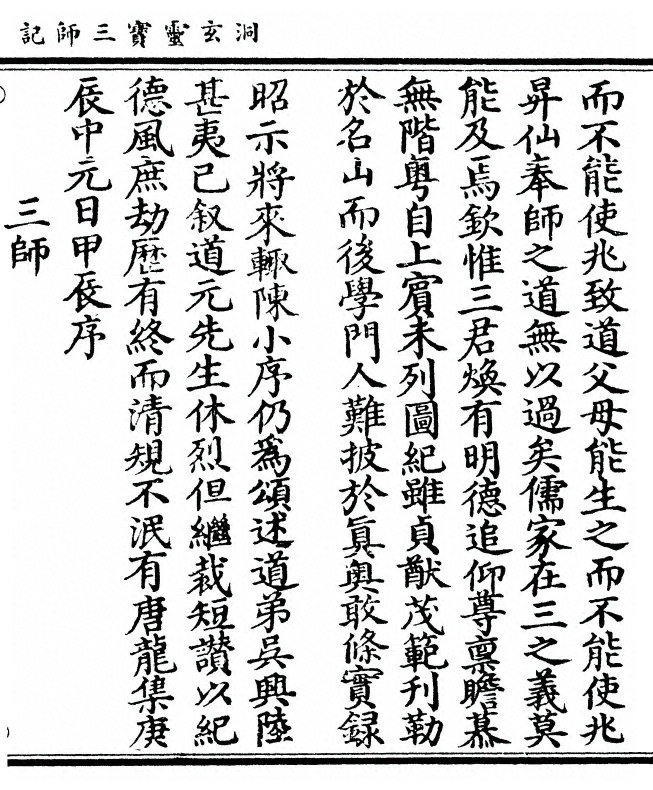 洞玄靈寶三師記
而不能使兆致道父母能生之而不能使兆
昇仙奉師之道無以過矣儒家在三之義莫
能及焉欽惟三君煥有明德追仰尊禀瞻慕
無階粤自上賔未列圖紀雖貞猷茂範刋勒
於名山而後學門人難披於眞奧敢條實録
昭示將來輙陳小序仍爲頌述道弟吳興陸
甚夷已叙道元先生休烈但繼裁短讃以紀
德風庶劫歷有終而清規不泯有唐龍集庚
辰中元日甲辰序
三師